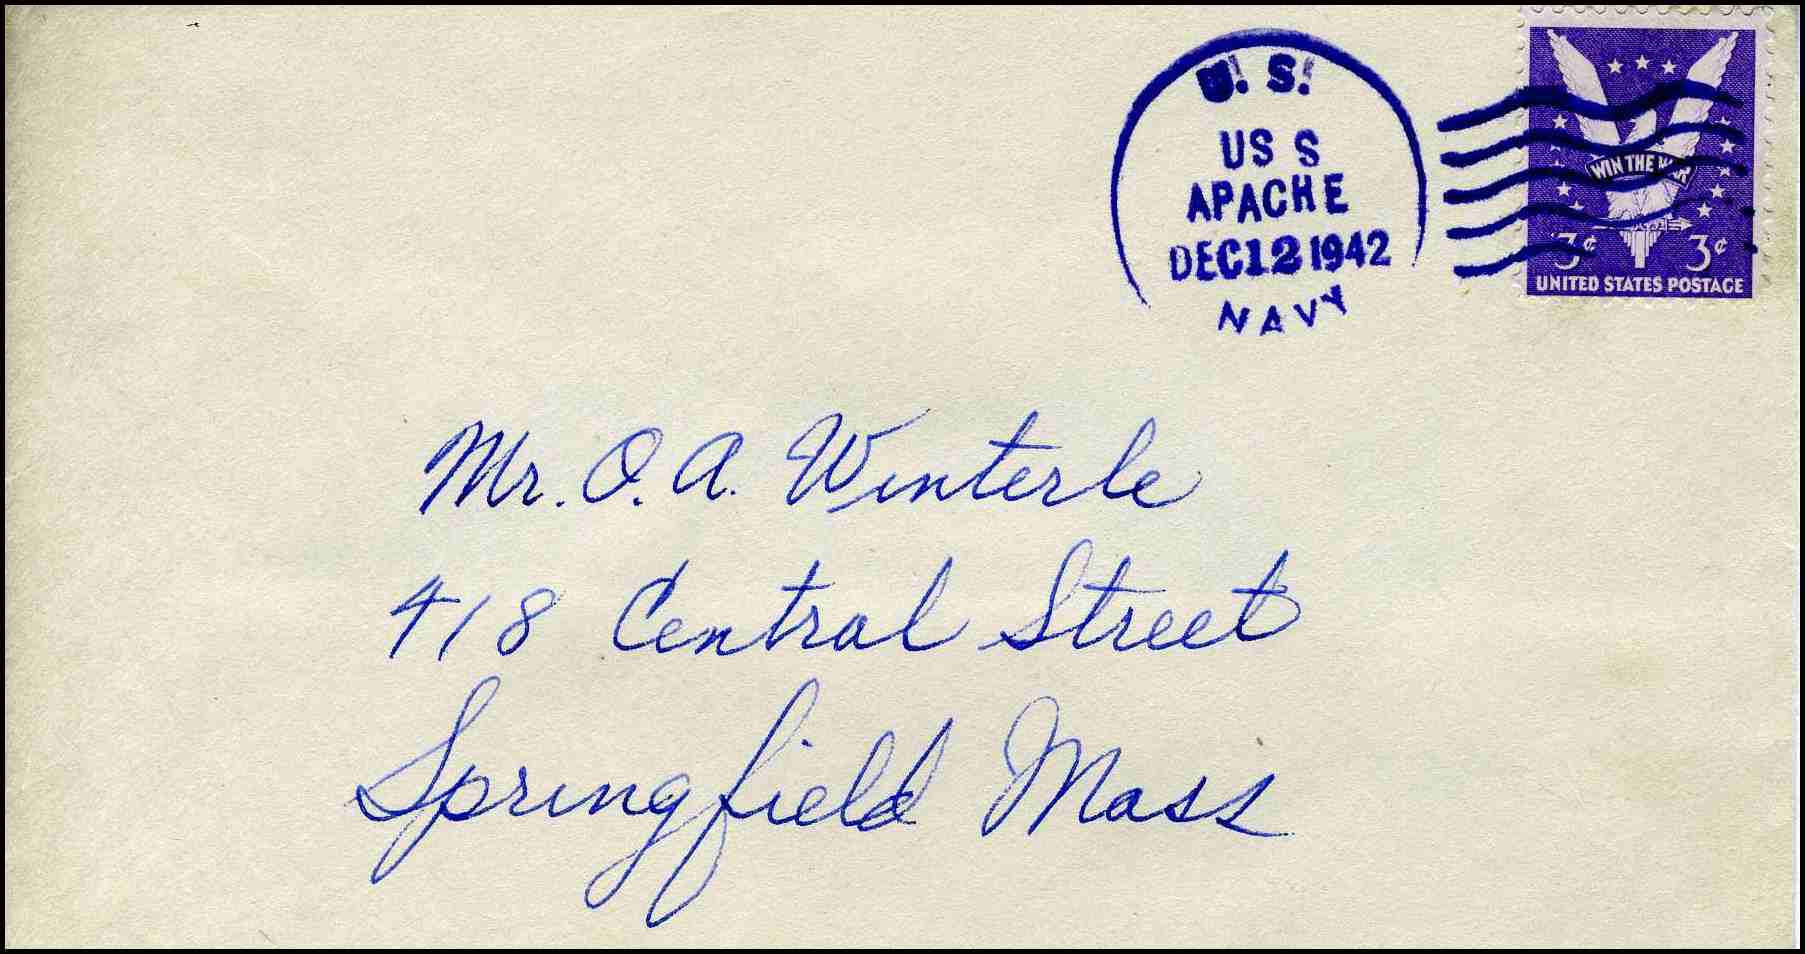 U.S.
USS
APACHE
DEC 12 1942
NAVY
WIN THE WAR
3¢ 3¢
UNITED STATES POSTAGE
Mr. O. A. Winterle
418 Central Street
Springfield Mass